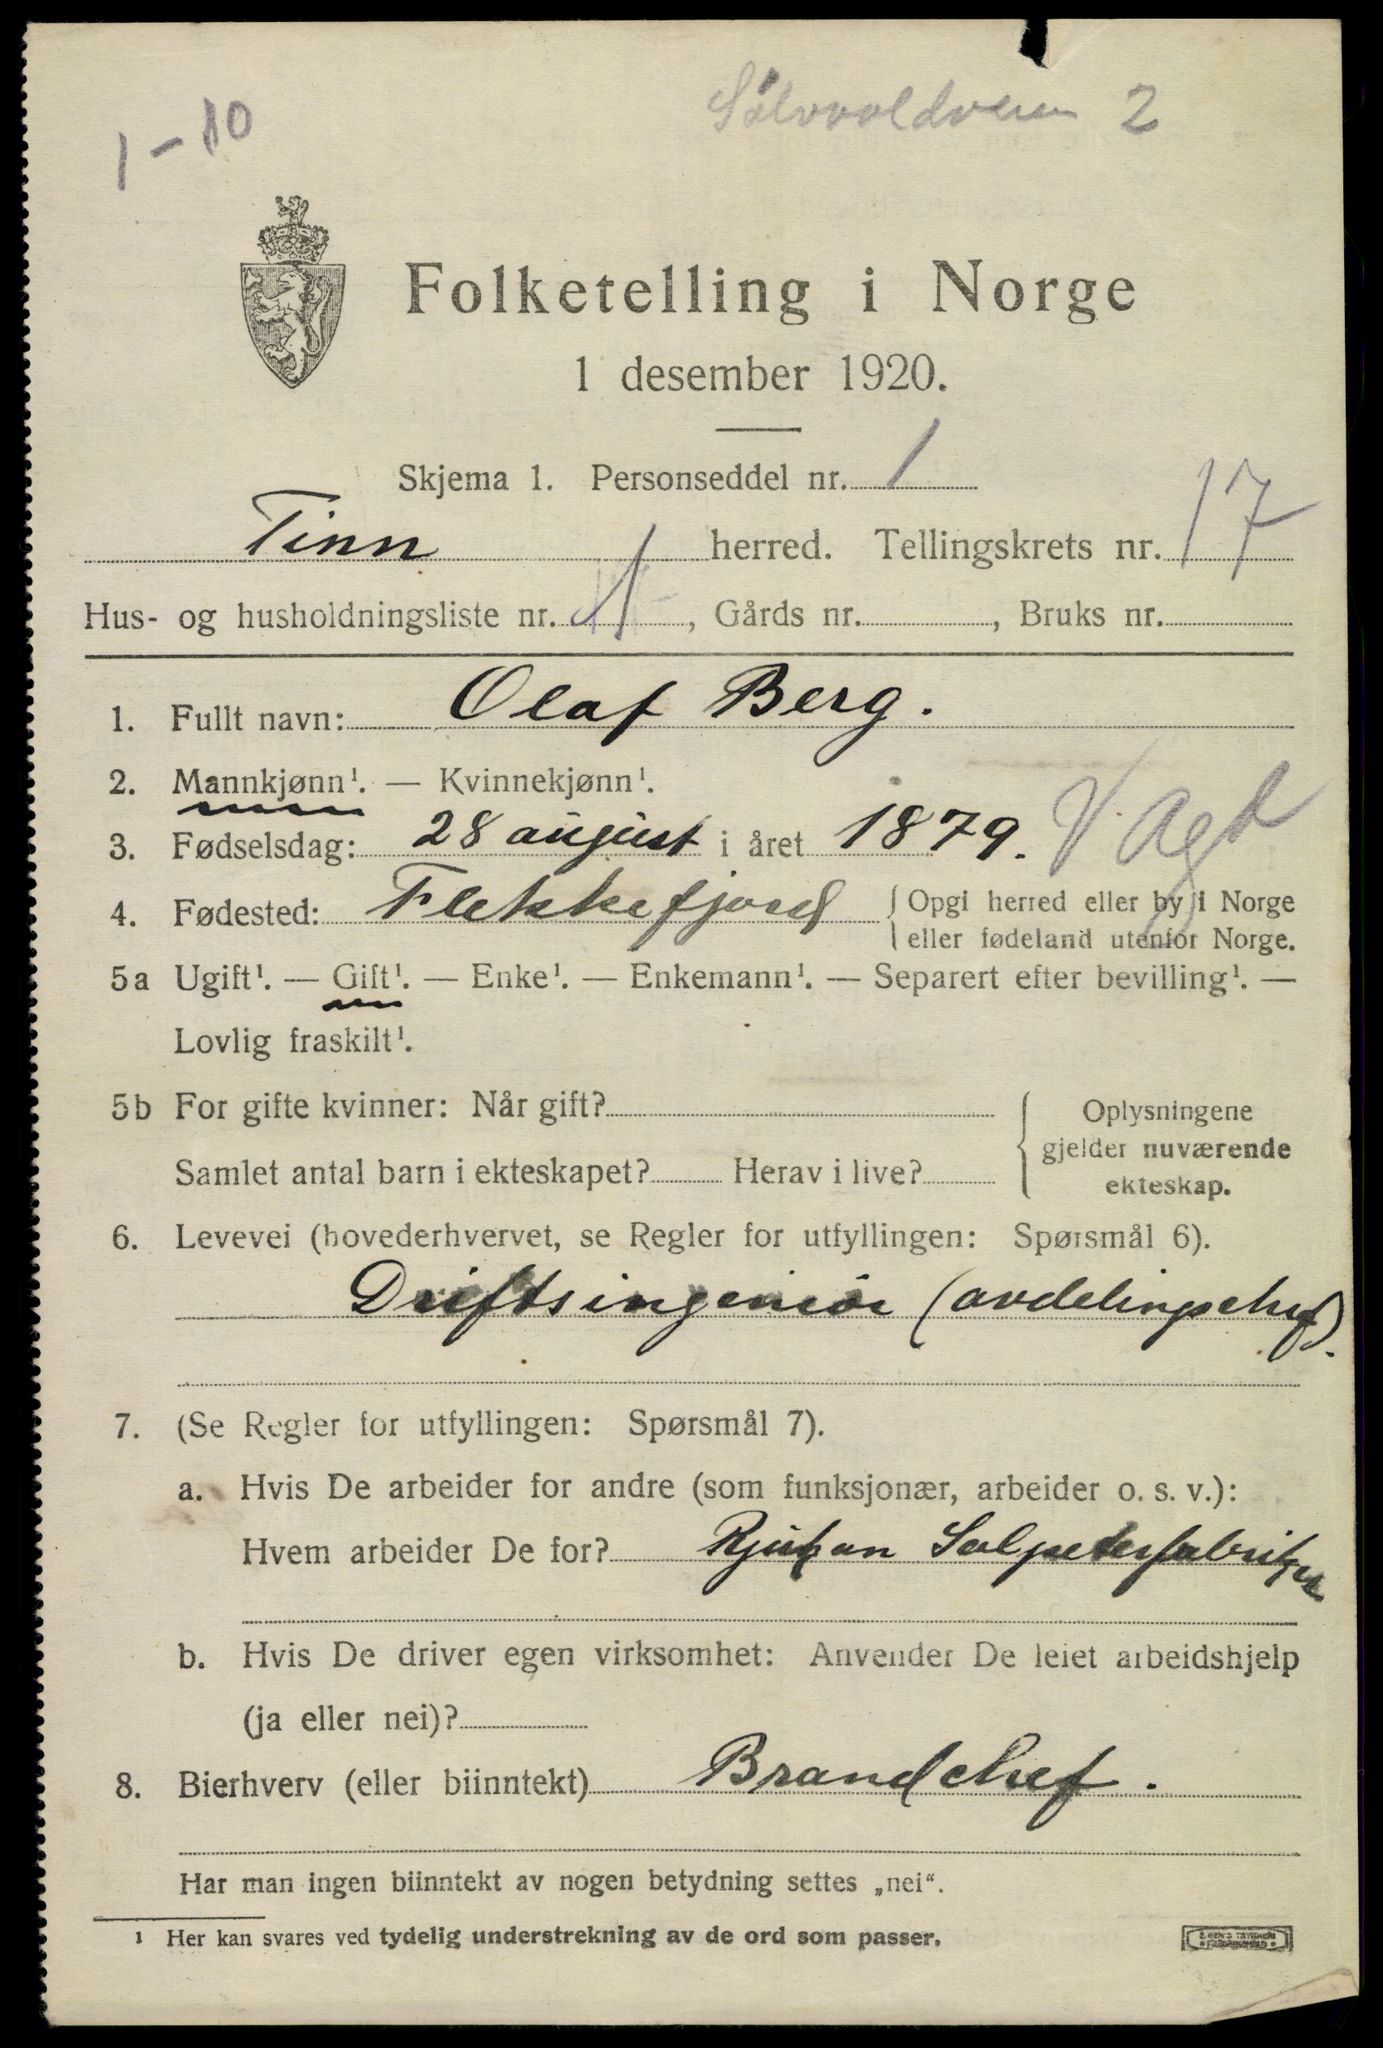 1-10
Sølvvoldveien 2
Folketelling i Norge
1 desember 1920.
Skjema 1. Personseddel nr. 1
Tinn herred. Tellingskrets nr. 17
Hus- og husholdningsliste nr. 1, Gårds nr. , Bruks nr.
1. Fullt navn: Olaf Berg.
2. Mannkjønn¹. — Kvinnekjønn¹.
3. Fødselsdag: 28 august i året 1879.
V Agd
4. Fødested: Flekkefjord { Opgi herred eller by i Norge
eller fødeland utenfor Norge.
5a Ugift¹. — Gift¹. — Enke¹. — Enkemann¹. — Separert efter bevilling¹. —
Lovlig fraskilt¹.
5b For gifte kvinner: Når gift? { Oplysningene
gjelder nuværende
Samlet antal barn i ekteskapet? Herav i live?
ekteskap.
6. Levevei (hovederhvervet, se Regler for utfyllingen: Spørsmål 6).
Driftsingeniør (avdelingschef).
7. (Se Regler for utfyllingen: Spørsmål 7).
a. Hvis De arbeider for andre (som funksjonær, arbeider o. s. v.):
Hvem arbeider De for? Rjukan Salpeterfabrikker
b. Hvis De driver egen virksomhet: Anvender De leiet arbeidshjelp
(ja eller nei)?
8. Bierhverv (eller biinntekt) Brandchef.
Har man ingen biinntekt av nogen betydning settes „nei“.
¹ Her kan svares ved tydelig understrekning av de ord som passer.